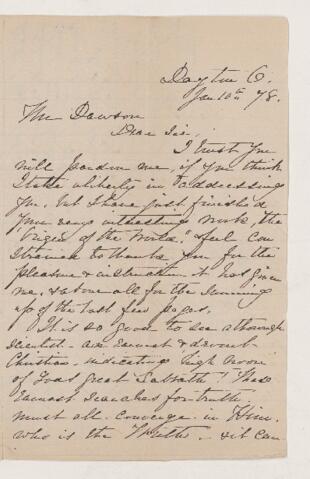 Dayton O.
Jan 10th 78.
Mr Dawson
Dear Sir.
I trust you
will pardon me, if you think
I take a liberty in addressing
you, but I have just finished
your very interesting work, the
"Origin of the World," & feel con
strained to thank you for the
pleasure & instruction it has given
me, & above all for the summing
up of the last few pages.
It is so good to see a thorough
scientist - an earnest & devout
Christian, indicating high noon
of "God's great Sabbath"! These
earnest searches for truth
must all converge in Him
who is the Truth - & it can